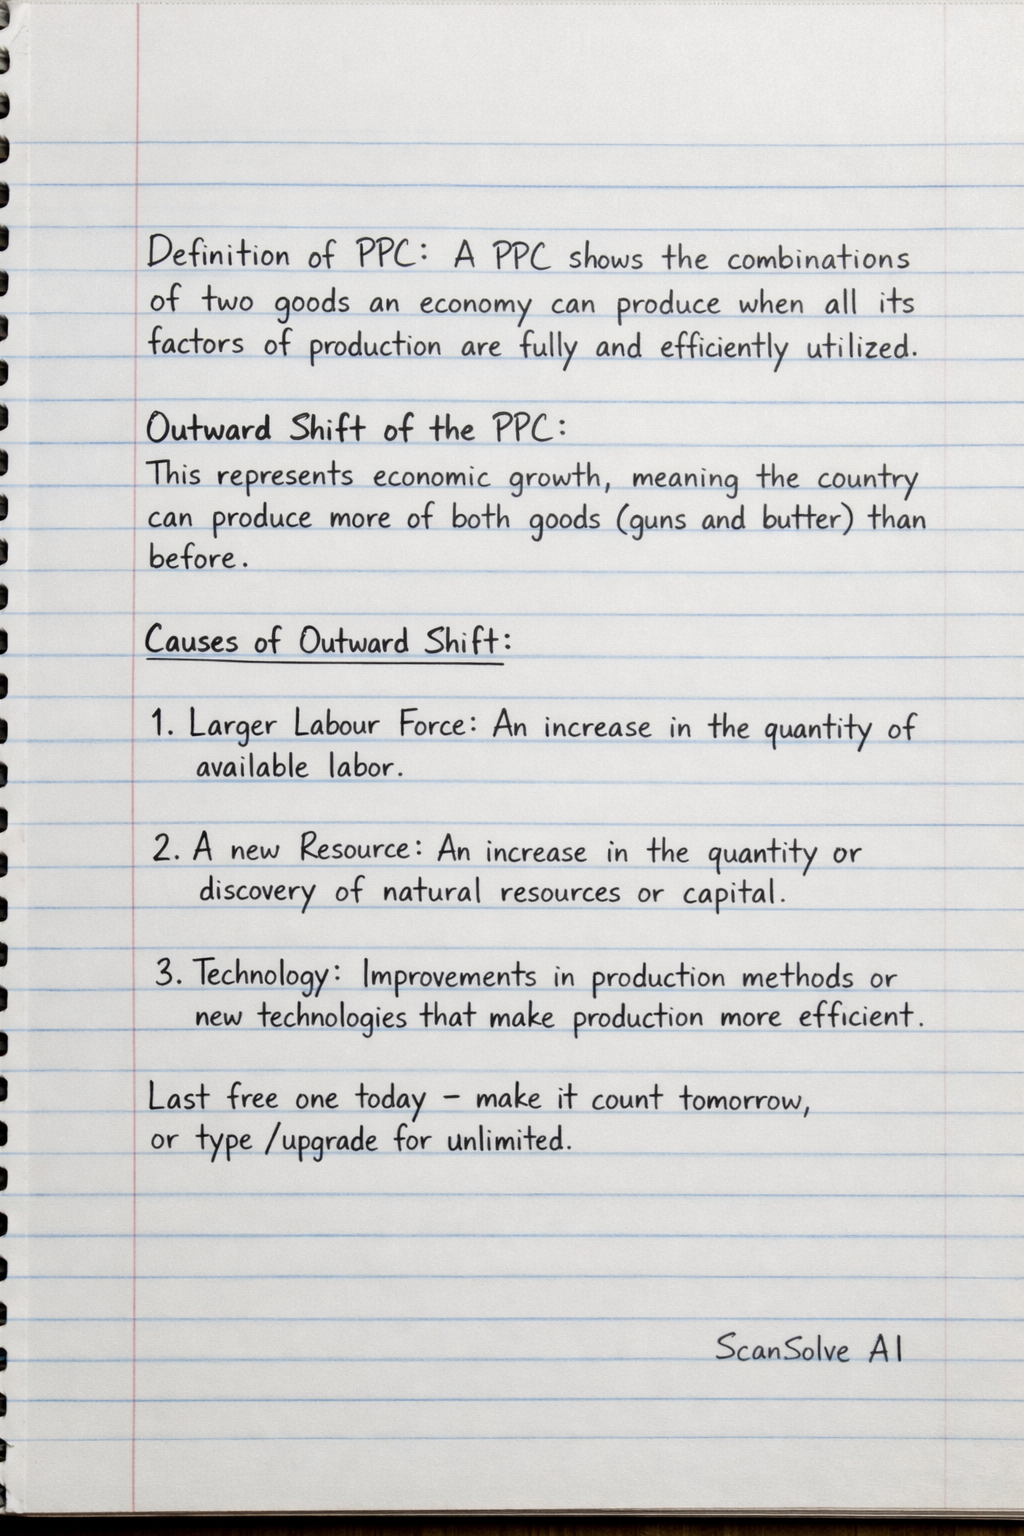 Definition of PPC: A PPC shows the combinations
of two goods an economy can produce when all its
factors of production are fully and efficiently utilized.
Outward Shift of the PPC:
This represents economic growth, meaning the country
can produce more of both goods (guns and butter) than
before.
Causes of Outward Shift:
1. Larger Labour Force: An increase in the quantity of
available labor.
2. A new Resource: An increase in the quantity or
discovery of natural resources or capital.
3. Technology: Improvements in production methods or
new technologies that make production more efficient.
Last free one today – make it count tomorrow,
or type /upgrade for unlimited.
ScanSolve AI